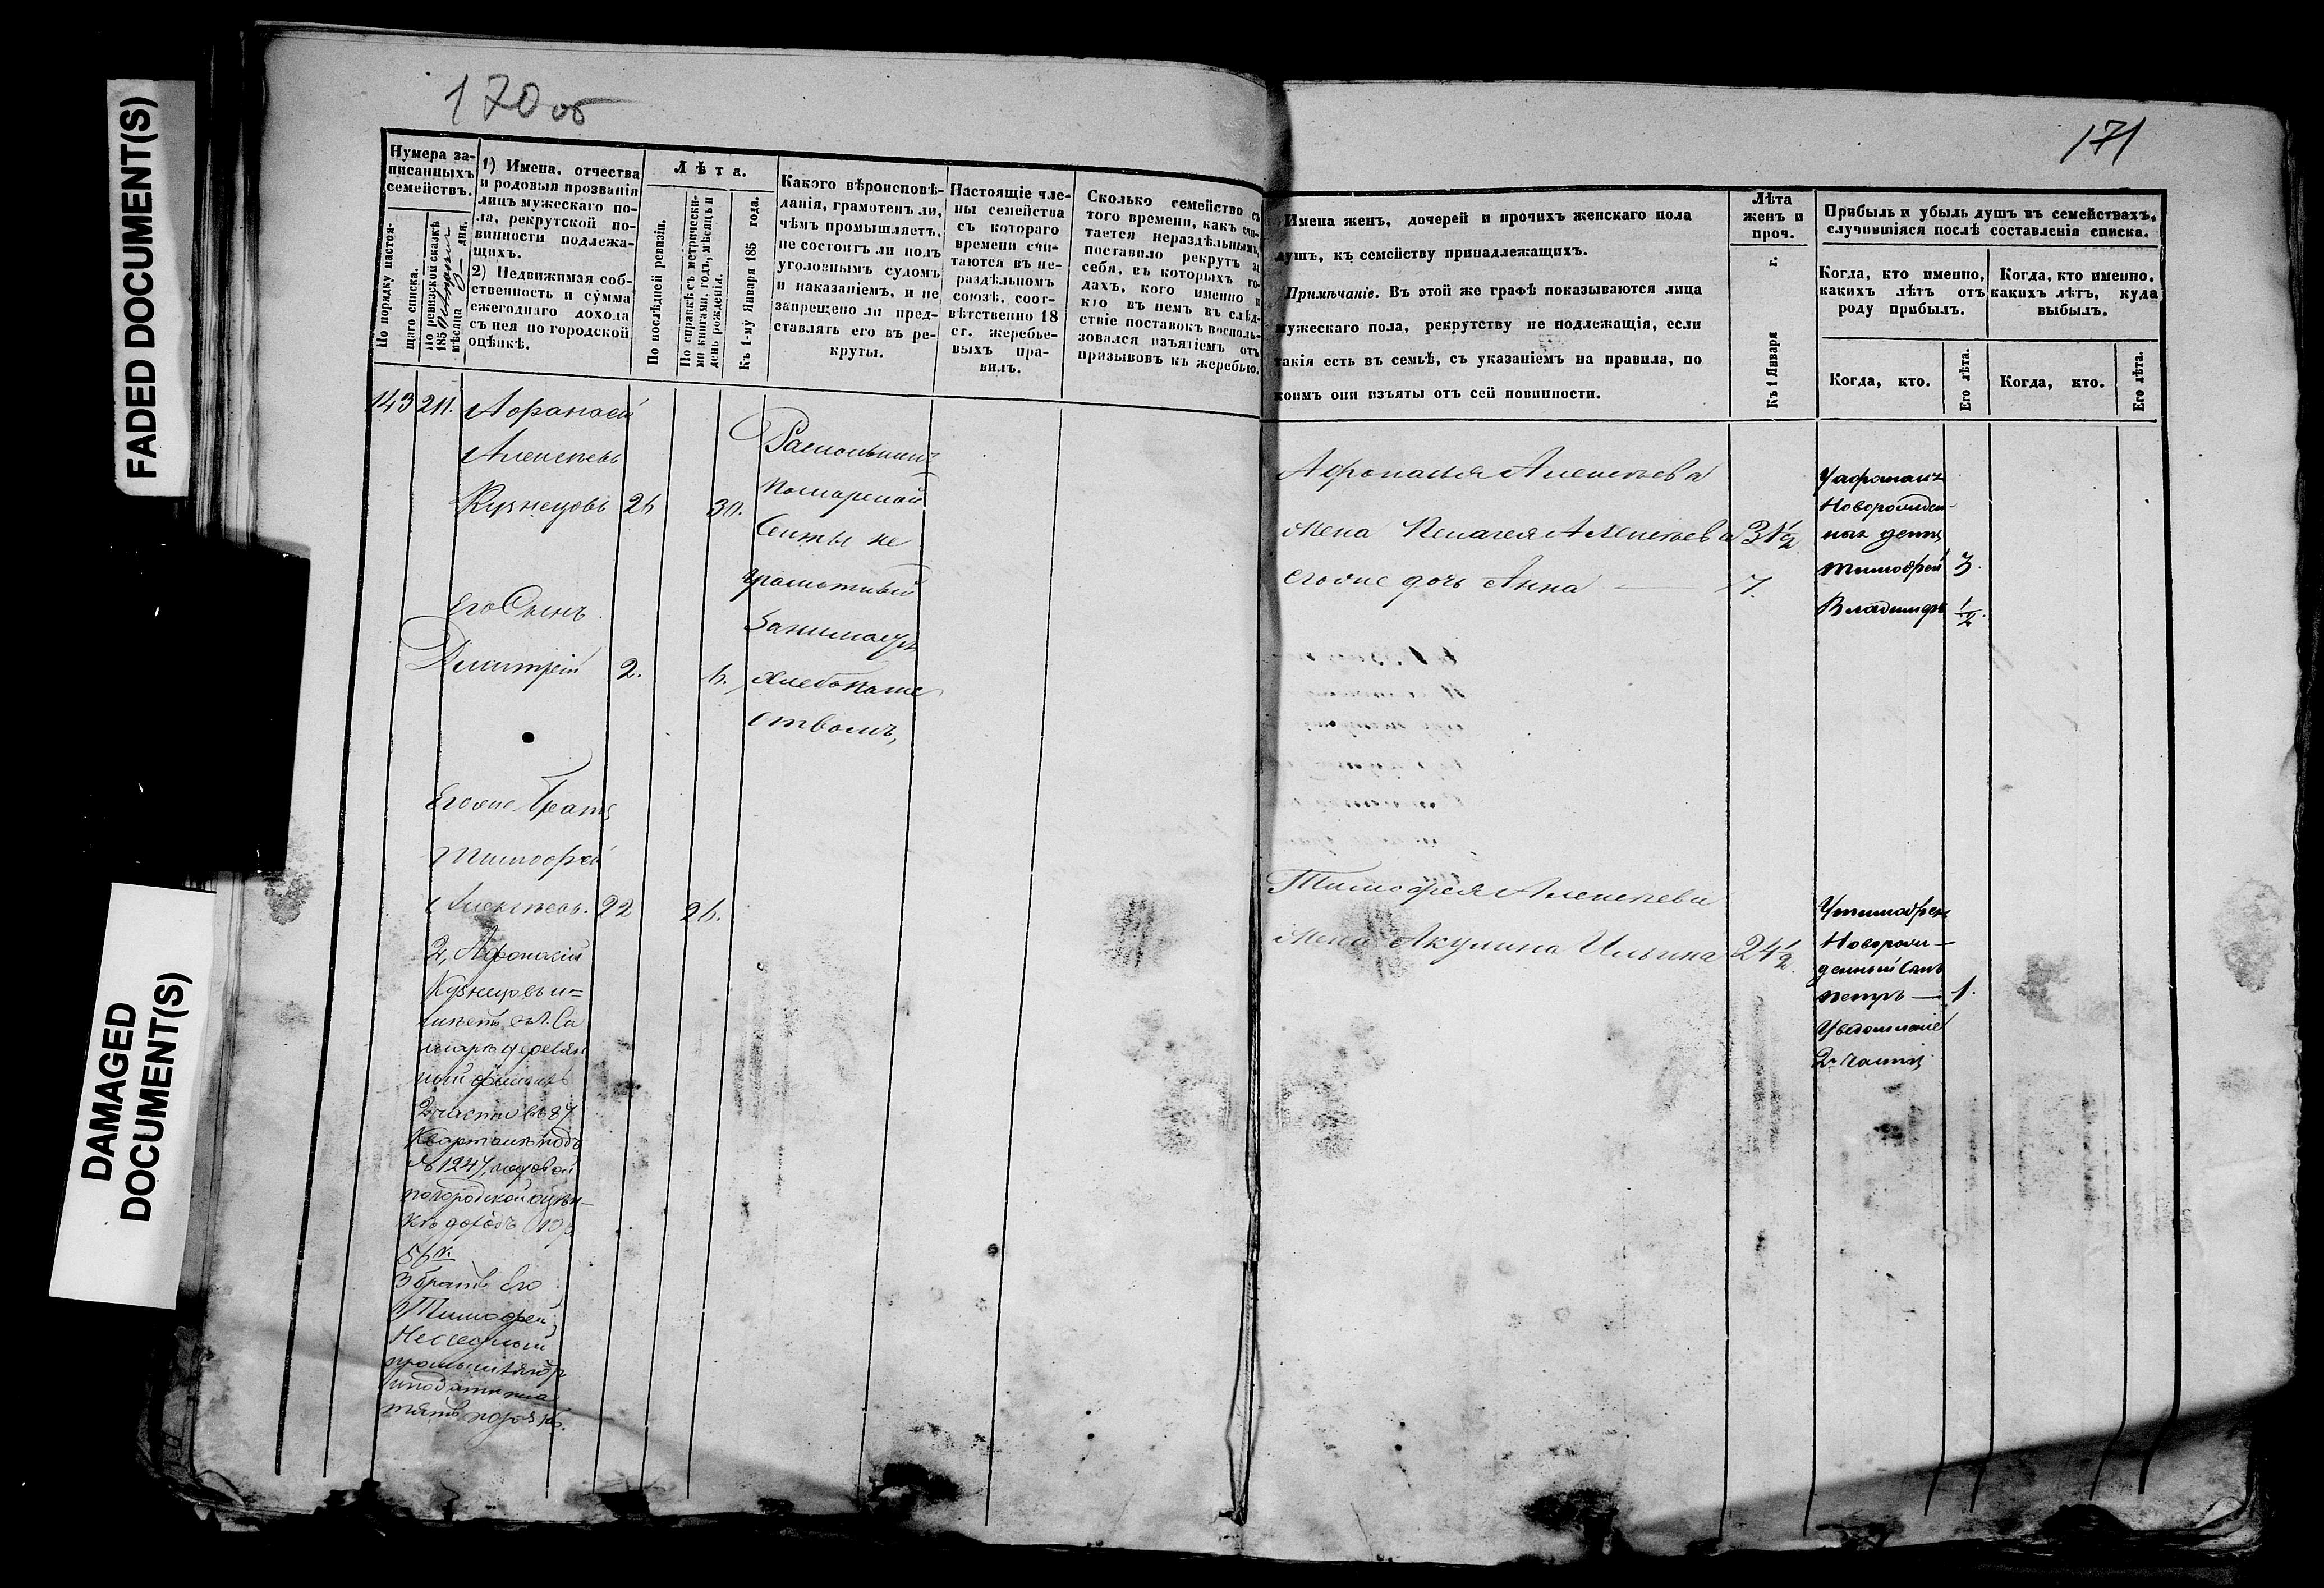 FADED DOCUMENT(S)
DAMAGED
DOCUMENT(S)
170 об
Нумера за-
писанныхъ
семействъ.
По порядку настоя-
щаго списка.
По ревизской сказкѣ
1850
мѣсяца дня.
1) Имена, отчества
и родовыя прозванія
лицъ мужескаго по-
ла, рекрутской по-
винности подлежа-
щихъ.
2) Недвижимая соб-
ственность и сумма
ежегоднаго дохода
съ нея по городской
оцѣнкѣ.
Лѣта.
По послѣдней ревизіи.
По справкѣ съ метрически-
ми книгами, годъ, мѣсяцъ и
день рожденія.
Къ 1-му Января 185 года.
Какого вѣроисповѣ-
данія, грамотенъ ли,
чѣмъ промышляетъ,
не состоитъ ли подъ
уголовнымъ судомъ
и наказаніемъ, и не
запрещено ли пред-
ставлять его въ ре-
круты.
Настоящіе чле-
ны семейства
съ котораго
времени счи-
таются въ не-
раздѣльномъ
союзѣ, соот-
вѣтственно 18
ст. жеребье-
выхъ пра-
вилъ.
Сколько семейство съ
того времени, какъ счи-
тается нераздѣльнымъ,
поставило рекрутъ за
себя, въ которыхъ го-
дахъ, кого именно и
кто въ немъ въ слѣд-
ствіе поставокъ восполь-
зовался изъятіемъ отъ
призывовъ къ жеребью.
143 211. Афанасій
Алексѣевъ
Кузнецовъ 26 30.
Его Сынъ
Дмитрій 2. 6.
Егоже Братъ
Тимофей
Алексѣевъ. 22 26.
2, Афонасій
Кузнецовъ и=
мѣетъ въ г. Са
марѣ деревян
ный
2 части въ 87
Кварталѣ подъ
№ 1247,
по городской оцѣн-
кѣ доходъ 10 р
86 к.
3 братъ Его
Тимофей
Раскольникъ
Поморской
Секты не
грамотный
Занимаетъ
хлебопаше
ствомъ,
171
Имена женъ, дочерей и прочихъ женскаго пола
душъ, къ семейству принадлежащихъ.
Примѣчаніе. Въ этой же графѣ показываются лица
мужескаго пола, рекрутству не подлежащія, если
такія есть въ семьѣ, съ указаніемъ на правила, по
коимъ они изъяты отъ сей повинности.
Лѣта
женъ и
проч.
Къ 1 Января г.
Прибыль и убыль душъ въ семействахъ,
случившіяся послѣ составленія списка.
Когда, кто именно,
какихъ лѣтъ отъ
роду прибылъ.
Когда, кто именно,
какихъ лѣтъ, куда
выбылъ.
Когда, кто.
Его лѣта.
Когда, кто.
Его лѣта.
Афонасия Алексѣева
жена Пелагея Алексѣева 31 1/2
егоже дочь Анна — 7.
Тимофея Алексѣева
жена Акулина Ильина 24 1/2
Новорожден-
ныя дети
Тимофей 3.
Владимиръ 1/2.
У тимофея
Новорож-
денный Сынъ
Петръ — 1.
Уведомление
2й части